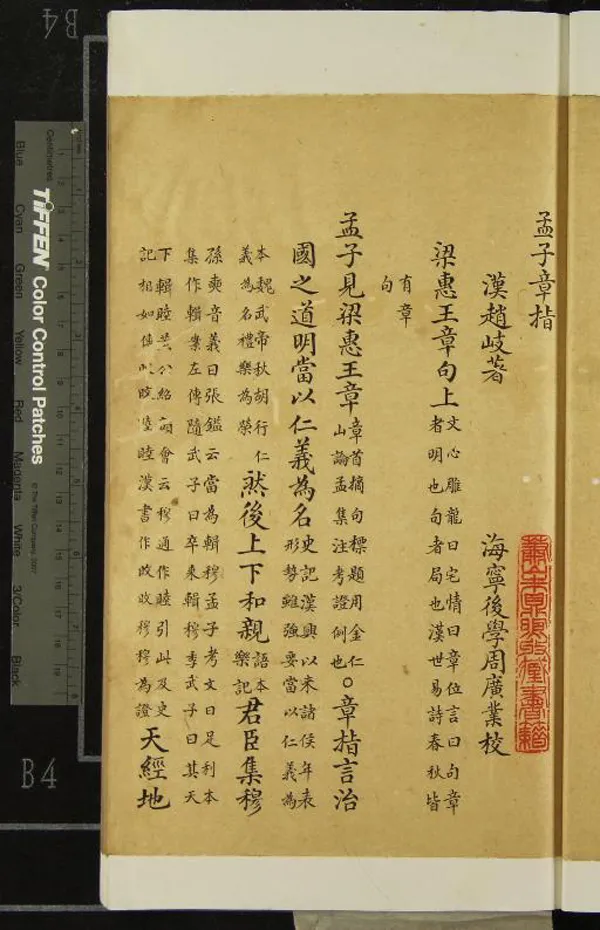 孟子章指
漢趙岐著 海寧後學周廣業校
蕭山朱鼎煦收藏書籍
梁惠王章句上文心雕龍曰宅情曰章位言曰句章
者明也句者局也漢世易詩春秋皆
有章
句
孟子見梁惠王章章首摘句標題用金仁
山論孟集注考證例也○章指言治
國之道明當以仁義為名史記漢興以來諸侯年表
形勢雖強要當以仁義為
本魏武帝秋胡行仁
義為名禮樂為榮然後上下和親語本
樂記君臣集穆
孫奭音義曰張鎰云當為輯穆孟子考文曰足利本
集作輯案左傳隨武子曰卒乘輯穆季武子曰其天
下輯睦黃公紹韻會云穆通作睦引此及史
記相如傳旼旼睦睦漢書作旼旼穆穆為證天經地
TIFFEN Color Control Patches
© The Tiffen Company, 2007
Centimetres
Inches
Blue Cyan Green Yellow Red Magenta White 3/Color Black
B4
B4